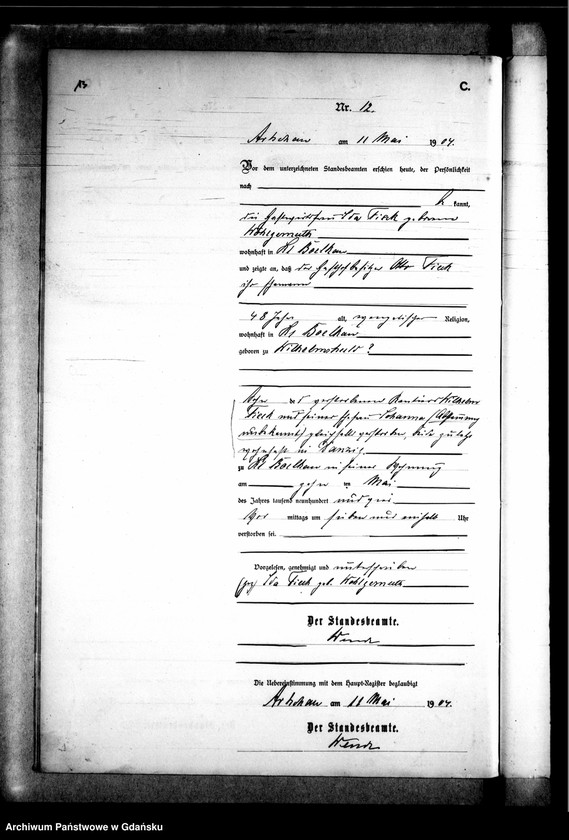 C.
Nr. 12.
Artschau am 11 Mai 1904.
Vor dem unterzeichneten Standesbeamten erschien heute, der Persönlichkeit
nach
kannt,
die Ida Fieck geborene
Wohlgemuth
wohnhaft in Kl. Boelkau
und zeigte an, daß der Gasthofbesitzer Otto Fieck
ihr Ehemann
48 Jahre alt, evangelischer Religion,
wohnhaft in Kl. Boelkau
geboren zu ?
Sohn des verstorbenen Rentiers Wilhelm
Fieck und seiner Ehefrau Johanna
unbekannt) gleichfalls verstorben, beide zuletzt
wohnhaft in Danzig
zu Kl. Boelkau in seiner Wohnung
am zehn ten Mai
des Jahres tausend neunhundert und
Vor mittags um sieben und einhalb Uhr
verstorben sei.
Vorgelesen, genehmigt und unterschrieben
(gez) Ida Fieck geb. Wohlgemuth
Der Standesbeamte.
Die Uebereinstimmung mit dem Haupt-Register beglaubigt
Artschau am 11 Mai 1904.
Der Standesbeamte.
Archiwum Państwowe w Gdańsku